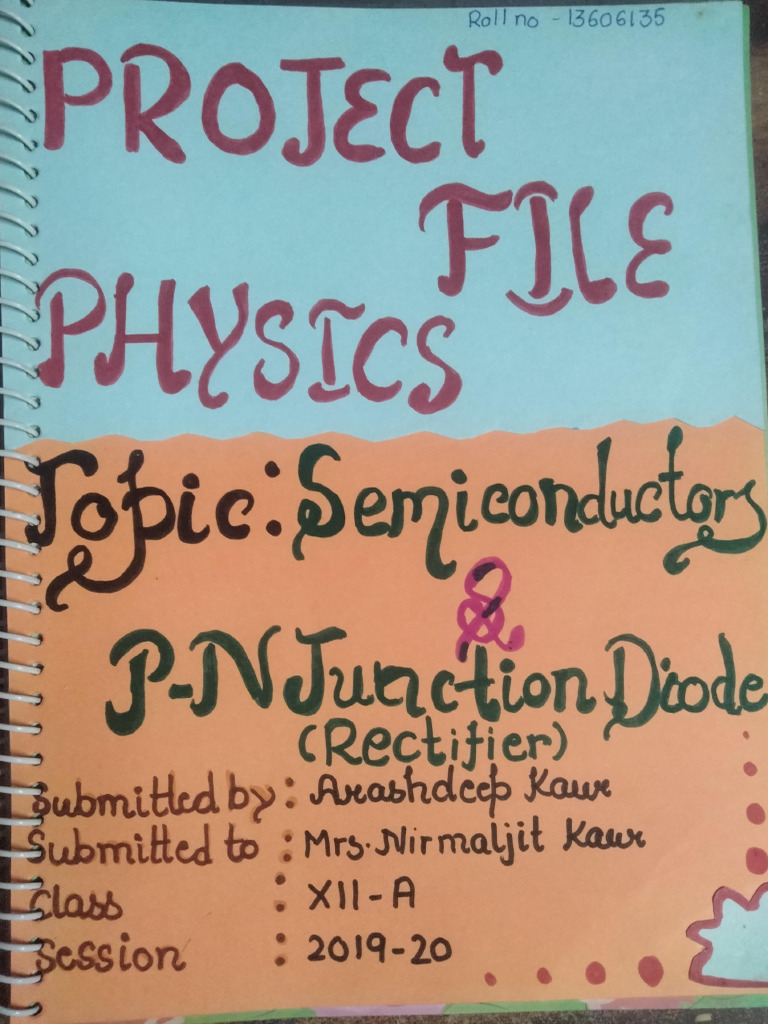 Roll no - 13606135
PROJECT
FILE
PHYSICS
Topic: Semiconductors
&
P-N Junction Diode
(Rectifier)
Submitted by : Arashdeep Kaur
Submitted to : Mrs. Nirmaljit Kaur
Class : XII-A
Session : 2019-20